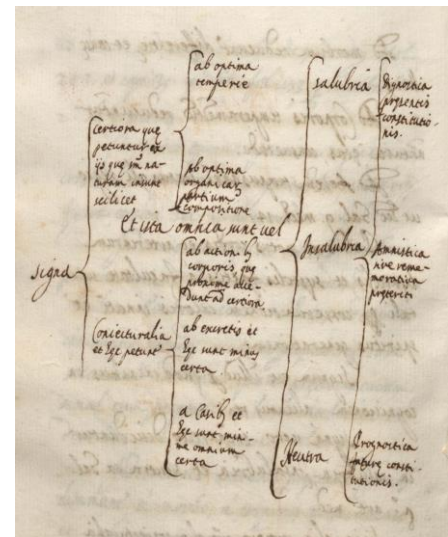 signa
certiora que
petuntur ex
ijs que sm̄ na-
turam insunt
scilicet
ab optima
temperie
ab optima
organicar
partium
compositione
Et ista omnia sunt vel
Coniecturalia
et hec petunt
ab actionib
corporis que
proxime acce-
dunt ad certiora
ab excretis et
hec sunt minus
certa
a Casib et
hec sunt mini-
me omnium
certa
salubria
Insalubria
Neutra
Dignostica
presentis
constitutio-
nis.
Amnistica
sive reme-
morativa
preteriti
Prognostica
future consti-
tutionis.